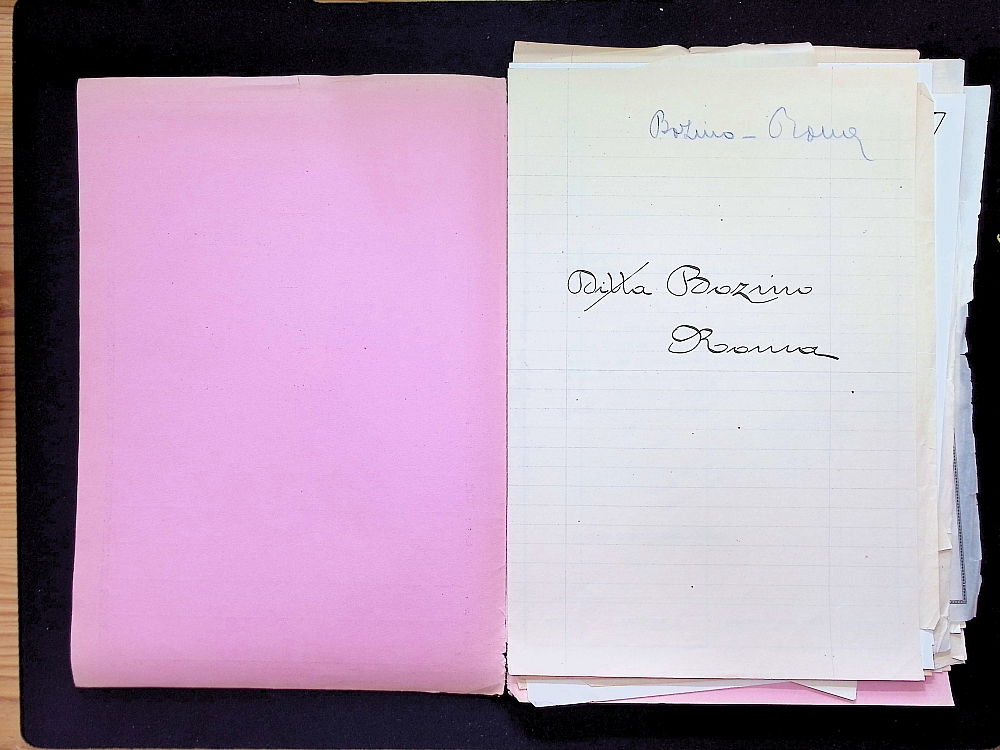 Bozino - Roma
Ditta Bozino
Roma